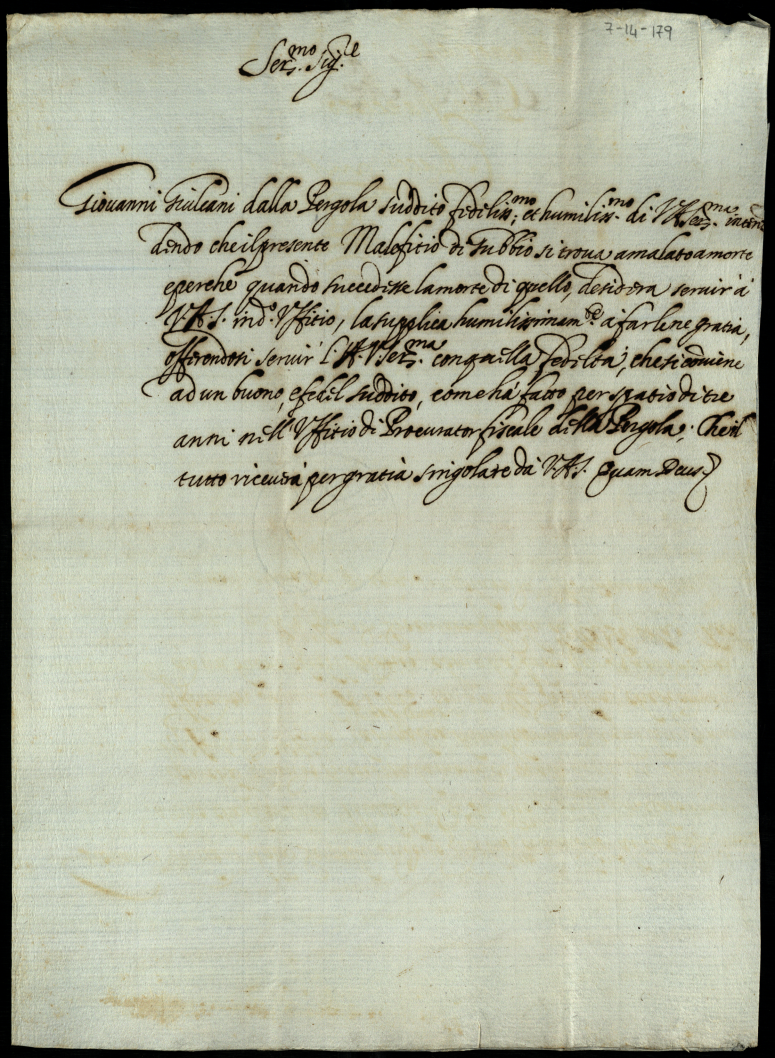 7-14-179
Ser.mo Sig.re
Giovanni Giuleani dalla Pergola suddito fedeliss.mo et humiliss.mo di V.A. Ser.ma inten
dendo che il presente Maleficio di Gubbio si trova amalato a morte
e perche quando succedesse la morte di quello, desidera servir à
V.A.S. in d.o Uffitio, la supplica humilissimam.te à farlene gratia,
offerendosi servir l'A.V. Ser.ma con quella fedeltà, che si conviene
ad un buono, e fedel suddito, come hà fatto per spatio di tre
anni nell'Uffitio di Procurator fiscale della Pergola; Che il
tutto riceverà per gratia singolare da V.A.S. Quam Deus